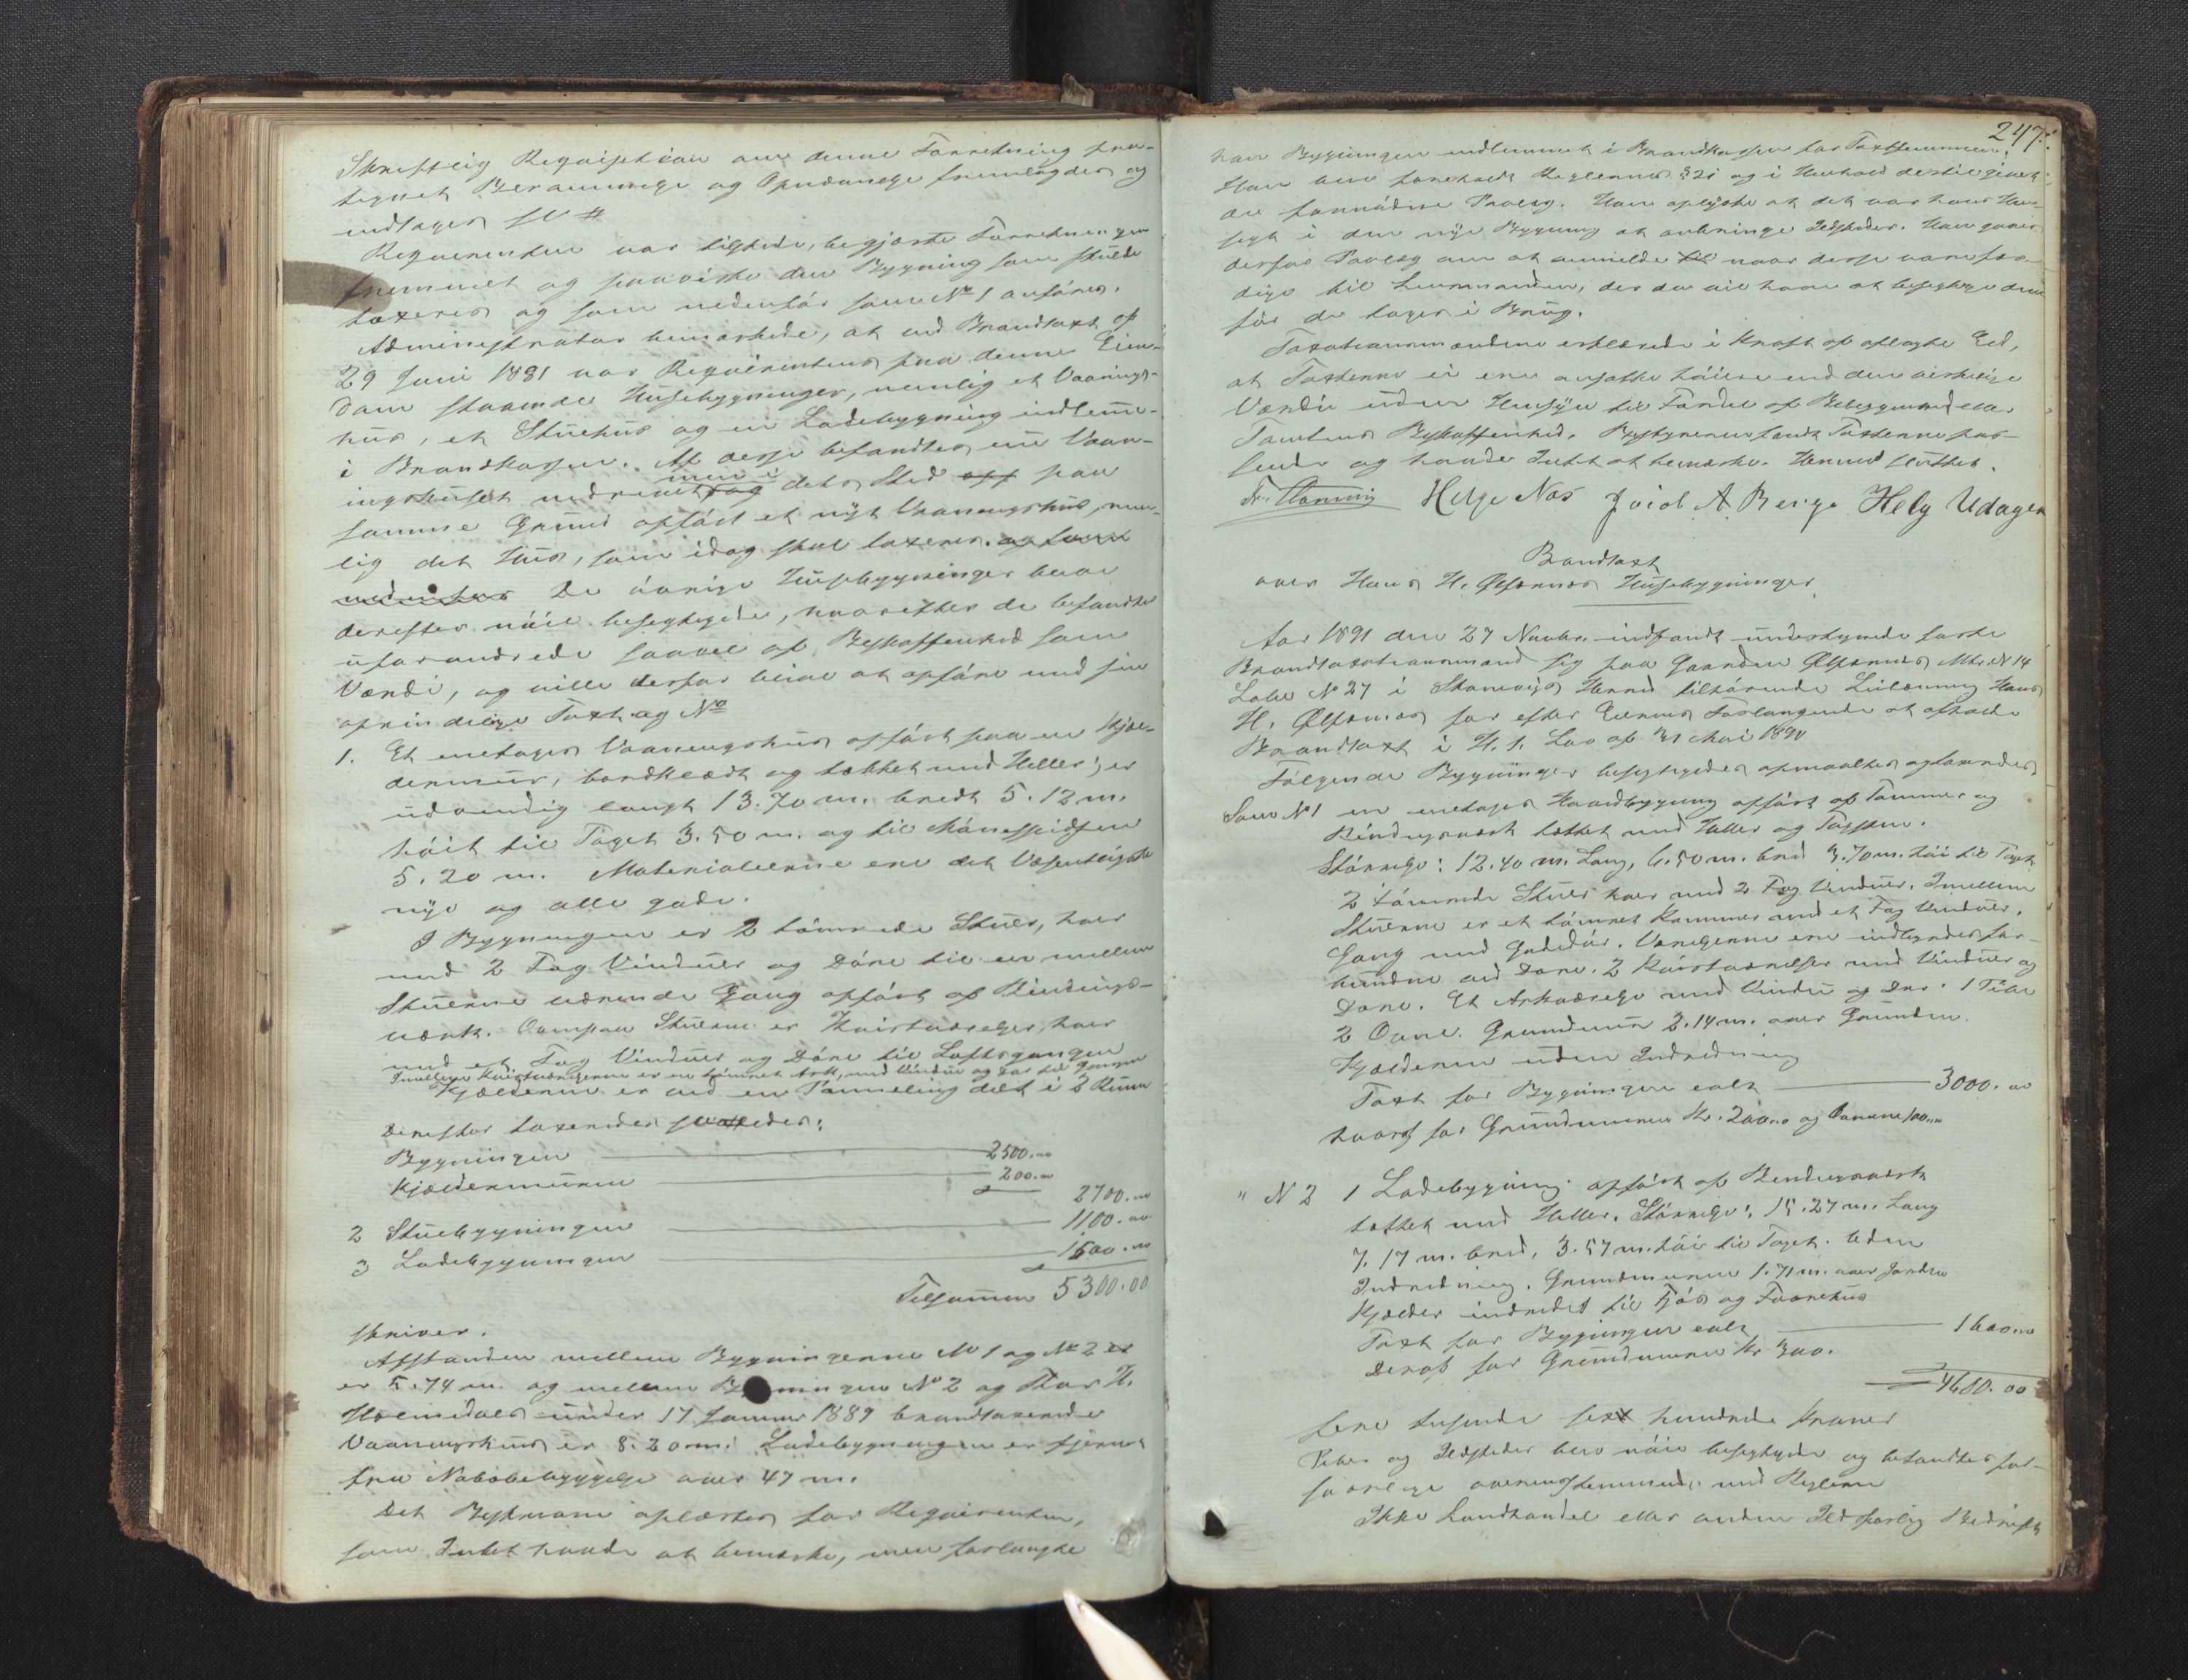 Skriftlig Requisition om denne Forretning paa-
tegnet Berammelse og Opnævnelse fremlagdes og
indtages sl #
Requirenten var tilstede, begjærte Forretningen
fremmet og paaviste den Bygning som skulde
taxeres og som nedenfor som No 1 anføres.
Administrator bemærkede, at ved Brandtaxt af
29 Juni 1881 var Requirentens paa denne Eien-
dom staaende Husebygninger, nemlig et Vaanings-
hus, et Stuehus og en Ladebygning indlemme-
i Brandkassen. Af disse befandtes nu Vaan-
ingshuset nedrevet og men i dets Sted opf paa
samme Grund opført et nyt Vaaningshus, nem-
lig det Hus, som idag skal taxeres. og som
nedenfor De øvrige Husebygninger blive
derefter nøie besigtigede, hvorefter de befandtes
uforandrede saavel af Beskaffenhed som
Værdi, og ville derfor blive at opføre med sin
oprindelige Taxt og No
1. Et enetages Vaaningshus opført paa en Kjæl-
dermur, bordklædt og tækket med Heller; er
udvendig langt 13.70 m. bredt 5.12 m.
høit til Taget 3.50 m. og til Mønespidsen
5.20 m. Materialierne ere det Væsentligste
nye og alle gode.
I Bygningen er 2 tømrede Stuer, hver
med 2 Fag Vinduer og Døre til en mellem
Stuerne værende Gang opført af Bindings-
værk. Ovenpaa Stuerne er Kvistværelser, hver
med et Fag Vinduer og Døre til Loftsgangen
Imellem Kvistværelserne er en tømret Ark, med Vindue og Dør til Gangen
Kjælderen er ved en Panneling delt i 2 Rum
Derefter taxeredes saaledes:
Bygningen 2500.00
Kjældermuren 200.00
2700.00
2 Stuebygningen 1100.00
3 Ladebygningen 1500.00
Tilsammen 5300.00
skriver.
Afstanden mellem Bygningerne No 1 og No 2 er
er 5.74 m. og mellem Bygningen No 2 og Thor H.
Holmedals under 17 Januar 1889 brandtaxerede
Vaaningshus er 8.20 m. Ladebygningen er fjernet
fra Nabobebyggelse over 47 m.
Det Beskrevne oplæstes for Requirenten,
som Intet havde at bemærke, men forlangte
247.
han Bygningen indlemmet i Brandkassen for Taxtsummen.
Han blev foreholdt Reglernes § 21 og i Henhold dertil givet
de fornødne Paalæg. Han oplyste at det var hans Hen-
sigt i den nye Bygning at anbringe Ildsteder. Ham gaves
derfor Paalæg om at anmelde til naar disse vare fær-
dige til Lensmanden, der da vil have at besigtige dem
før de tages i Brug.
Taxationsmændene erklærede i Kraft af aflagte Eed,
at Taxterne ei ere ansatte høiere end den virkelige
Værdi uden Hensyn til Fordel af Beliggenhed eller
Tomtens Beskaffenhed. Bestyreren fandt Taxterne pas-
sende og havde Intet at bemærke. Hermed sluttet.
Helge Nøs A Berge Helg Udagen
Brandtaxt
over Hans H. Ølfernes Husebygninger
Aar 1891 den 27 Novbr. indfandt undertegnede faste
Brandtaxationsmænd sig paa Gaarden Ølfernes Mtr. N 14
Løbe No 27 i Skonevigs Herred tilhørende Hans
H. Ølfernes for efter Eierens Forlangende at afholde
Brandtaxt i H. t. Lov af 31 Mai 1890
Følgende Bygninger besigtigedes opmaaltes og taxeredes
Som No 1 en enetages Hovedbygning opført af Tømmer og
Bindingsværk tækket med Heller og Tagspon.
Størrelse: 12.40 m. Lang, 6.50 m. bred 3.70 m. høi til Taget
2 tømrede Stuer hver med 2 Fag Vinduer. Imellem
Stuerne er et tømret Kammer med et Fag Vinduer.
Gang med Gadedør. Værelserne ere indbyrdes for-
bundne ved Døre. 2 Kvistværelser med Vinduer og
Døre. Et Arkværelse med Vindu og Dør. 1 Pibe
2 Ovne. Grundmur 2.14 m. over Grunden.
Kjælderen uden Indredning
Taxt for Bygningen ialt 3000.00
hvoraf for Grundmuren Kr. 200.00 og Ovnene 100.00
" N 2 1 Ladebygning opført af Bindingsværk
tækket med Heller. Størrelse: 15.27 m. Lang
7.17 m. bred, 3.57 m. høi til Taget. Uden
Indredning. Grundmuren 1.71 m. over Jorden
Kjælder indredet til Fjøs og Faarehus
Taxt for Bygningen ialt 1600.00
Deraf for Grundmuren Kr 300.
4600.00
fire tusende sex hundrede Kroner
Piber og Ildsteder blev nøie besigtigede og befandtes for-
svarlige overensstemmende med Reglerne
Ikke Landhandel eller anden Ildsfarlig Bedrift